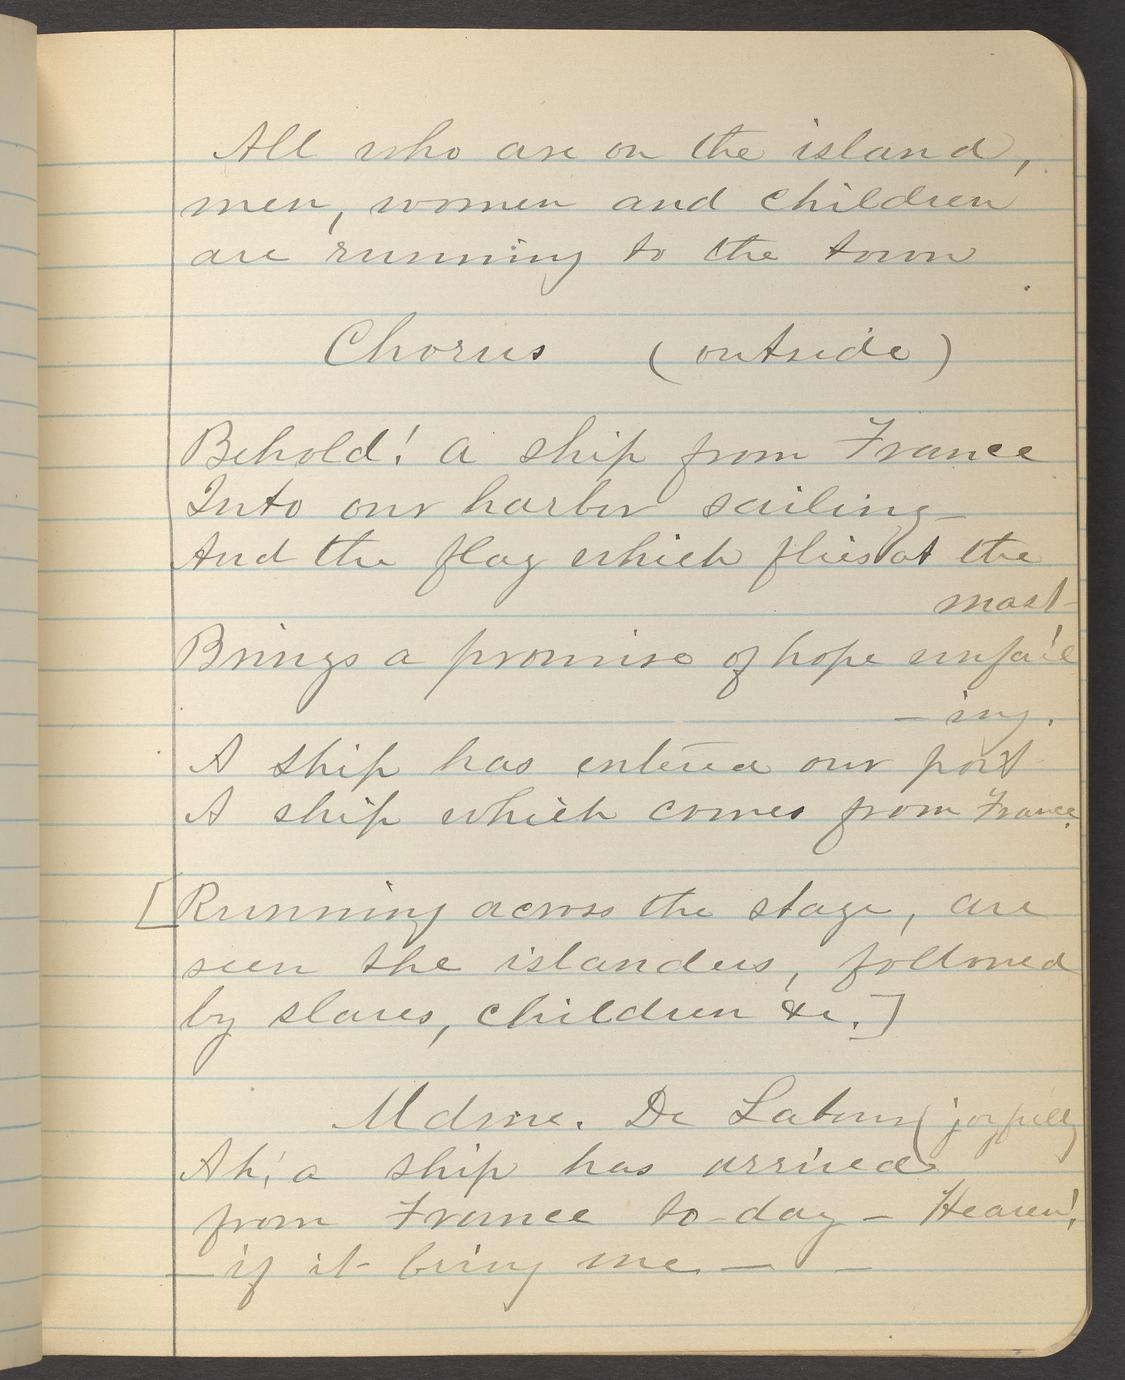 All who are on the island,
men, women and children
are running to the town
Chorus (outside)
Behold! a ship from France
Into our harbor sailing
And the flag which flies at the
mast
Brings a promise of hope unfail
- ing.
A ship has entered our port
A ship which comes from France.
[Running across the stage, are
seen the islanders, followed
by slaves, children &c.]
Mdme. De Latour (joyfully)
Ah! a ship has arrived
from France to-day - Heaven!
- if it bring me - -